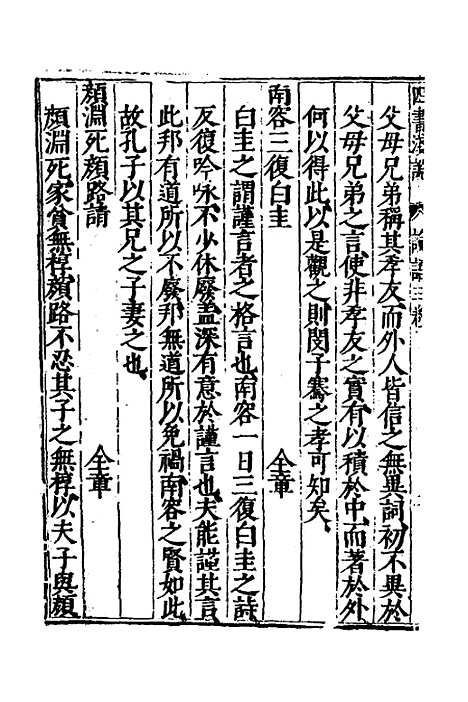 四書 論語 三卷
父母兄弟稱其孝友而外人皆信之無異詞初不異於
父母兄弟之言使非孝友之實有以積於中而著於外
何以得此以是觀之則閔子騫之孝可知矣
南容三復白圭 全章
白圭之謂謹言者之格言也南容一日三復白圭之詩
反復吟咏不少休廢盖深有意於謹言也夫能謹其言
此邦有道所以不廢邦無道所以免禍南容之賢如此
故孔子以其兄之子妻之也
顏淵死顏路請 全章
顏淵死家貧無椁顏路不忍其子之無椁以夫子與顏